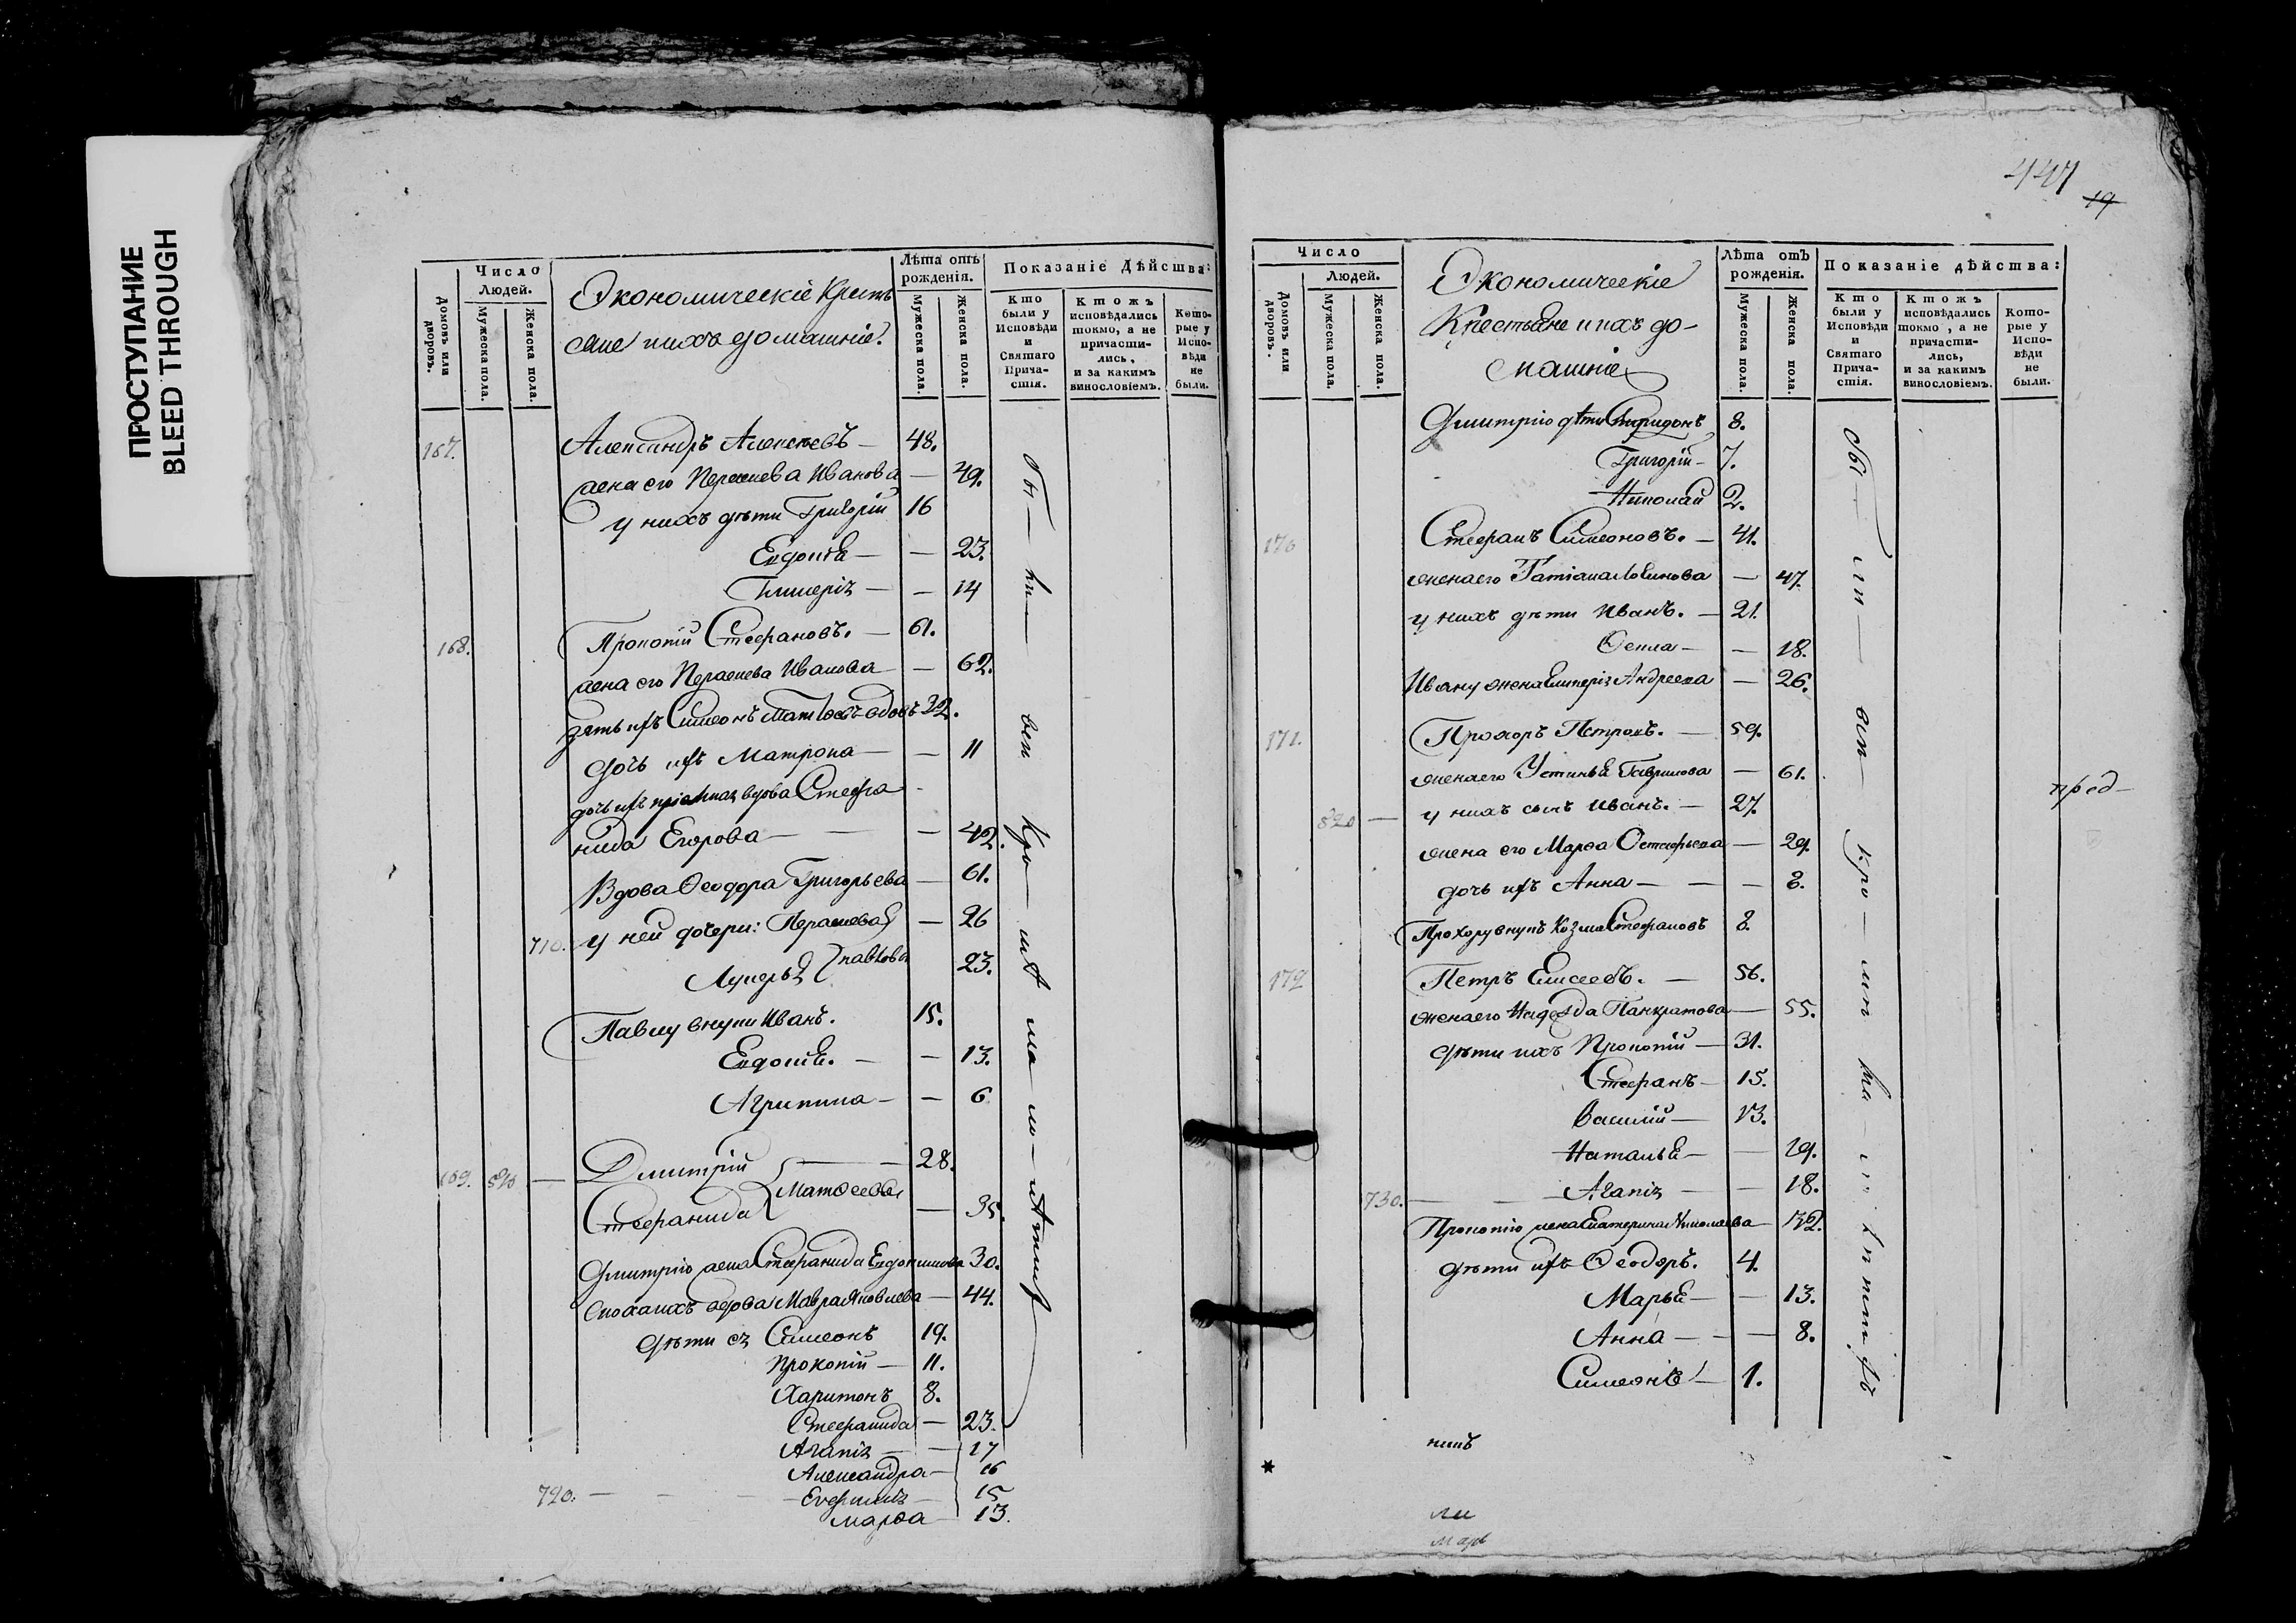 ПРОСТУПАНИЕ
BLEED THROUGH
Число
Людей.
Домовъ или дворовъ.
Мужеска пола.
Женска пола.
Экономическіе Кресть
яне и ихъ домашніе.
Лѣта отъ рожденія.
Мужеска пола.
Женска пола.
Показаніе Дѣйства:
Кто были у Исповѣди и Святаго Прича-стія.
Ктожъ исповѣдались токмо, а не причасти-лись, и за какимъ винословіемъ.
Кото-рые у Испо-вѣди не были.
167. Александръ Алексѣевъ — 48.
жена его Параскева Иванова — 49.
у нихъ дѣти Григорій 16
Евдокія — — 23.
Гликерія — — 14
168. Прокопій Стефановъ. — 61.
жена его Параскева Иванова — 62.
зять ихъ Симеонъ Матѳеевъ вдовъ 32.
дочь ихъ Матрона — — 11
дочь ихъ пріемная вдова Стефа
нида Егорова — — — 42.
Вдова Ѳеодора Григорьева — 61.
710. у ней дочери: Параскева — 26
Лукерья Павлова 23.
Павлу внуки Иванъ. 15.
Евдокія. — — 13.
Агрипина — — 6
169. 810 — Дмитрій — — 28.
Матѳеевы
Стефанида — 35.
Дмитрію жена Стефанида Евдокимова 30.
сноха ихъ вдова Мавра Яковлева — 44.
дѣти ея Симеонъ 19.
Прокопій — 11.
Харитонъ 8.
Стефанида — 23.
Агапія — — 17
Александра — 16
720. — — — Евфимія — 15
Марѳа 13.
бы — ли — всѣ Кро — мѣ ма — ло — лѣтних
447
19
Число
Людей.
Домовъ или дворовъ.
Мужеска пола.
Женска пола.
Экономическіе
Крестьяне и ихъ до-
машніе
Лѣта отъ рожденія.
Мужеска пола.
Женска пола.
Показаніе дѣйства:
Кто были у Исповѣди и Святаго Прича-стія.
Ктожъ исповѣдались токмо, а не причасти-лись, и за какимъ винословіемъ.
Кото-рые у Испо-вѣди не были.
Дмитрію дѣти Спиридонъ 8.
Григорій — 7.
Николай 2.
170 Стефанъ Симеоновъ. — 41.
жена его Татіана Логинова — 47.
у нихъ дѣти Иванъ. — 21.
Ѳекла — — 18.
Ивану жена Гликерія Андреева — 26.
171. Прохоръ Петровъ. — 59.
жена его Устинья Гаврилова — 61.
820 — у нихъ сынъ Иванъ. — 27.
жена его Марѳа Остафьева — 29.
дочь ихъ Анна — — — 2.
Прохору внукъ Козма Стефановъ 8.
172 Петръ Елисеевъ. — 56.
жена его Надежда Панкратова — 55.
дѣти ихъ Прокопій — 31.
Стефанъ — 15.
Василій — 13.
Наталья — — 29.
730. — — Агапія — — 18.
Прокопію жена Екатерина Николаева 32.
дѣти ихъ Ѳеодоръ. 4.
Марья — — 13.
Анна — — — 8.
Симеонъ — 1.
бы — ли — всѣ кро — мѣ
пред —
нинъ
ли
марь